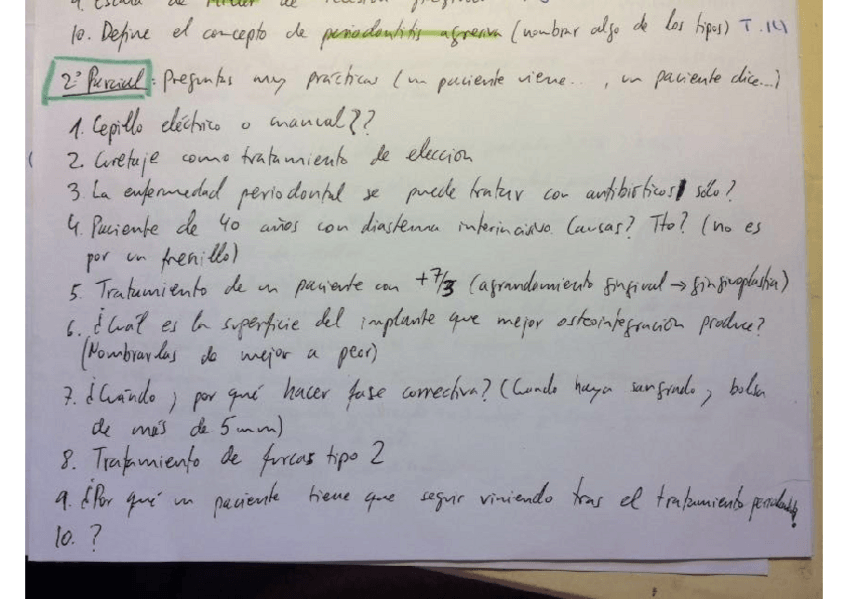 9. Escala de Miller de recesión
10. Define el concepto de periodontitis agresiva (nombrar algo de los tipos) T.14
2º Parcial: Preguntas muy prácticas (un paciente viene..., un paciente dice...)
1. Cepillo eléctrico o manual??
2. Curetaje como tratamiento de elección
3. La enfermedad periodontal se puede tratar con antibióticos sólo?
4. Paciente de 40 años con diastema interincisivo. Causas? Tto? (no es
por un frenillo)
5. Tratamiento de un paciente con +7/3 (agrandamiento gingival → gingivoplastia)
6. ¿Cuál es la superficie del implante que mejor osteointegración produce?
(Nombrarlas de mejor a peor)
7. ¿Cuándo y por qué hacer fase correctiva? (Cuando haya sangrado y bolsa
de más de 5mm)
8. Tratamiento de furcas tipo 2
9. ¿Por qué un paciente tiene que seguir viniendo tras el tratamiento periodontal?
10. ?